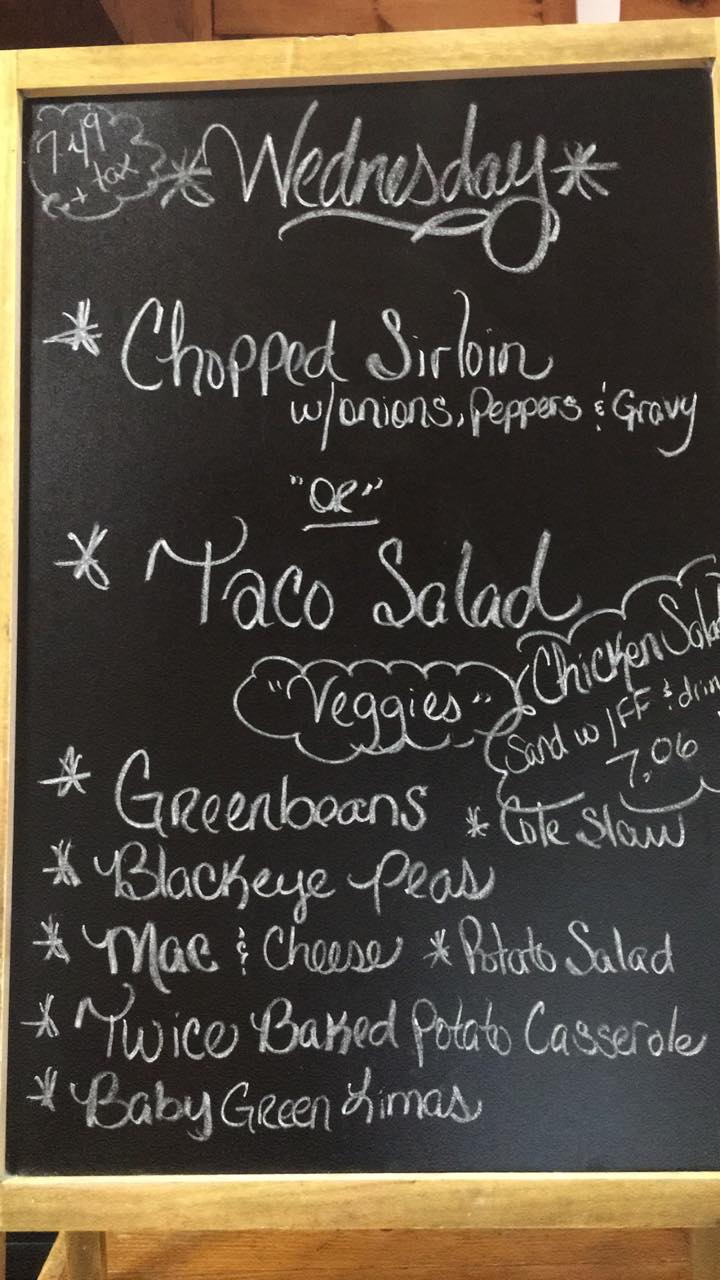 7.49
+ tax
* Wednesday *
* Chopped Sirloin
w/onions, Peppers & Gravy
"OR"
* Taco Salad
"Veggies"
Chicken Sala
Sand w/ FF & drin
7.06
* Greenbeans * Cole Slaw
* Blackeye Peas
* Mac & Cheese * Potato Salad
* Twice Baked Potato Casserole
* Baby Green Limas